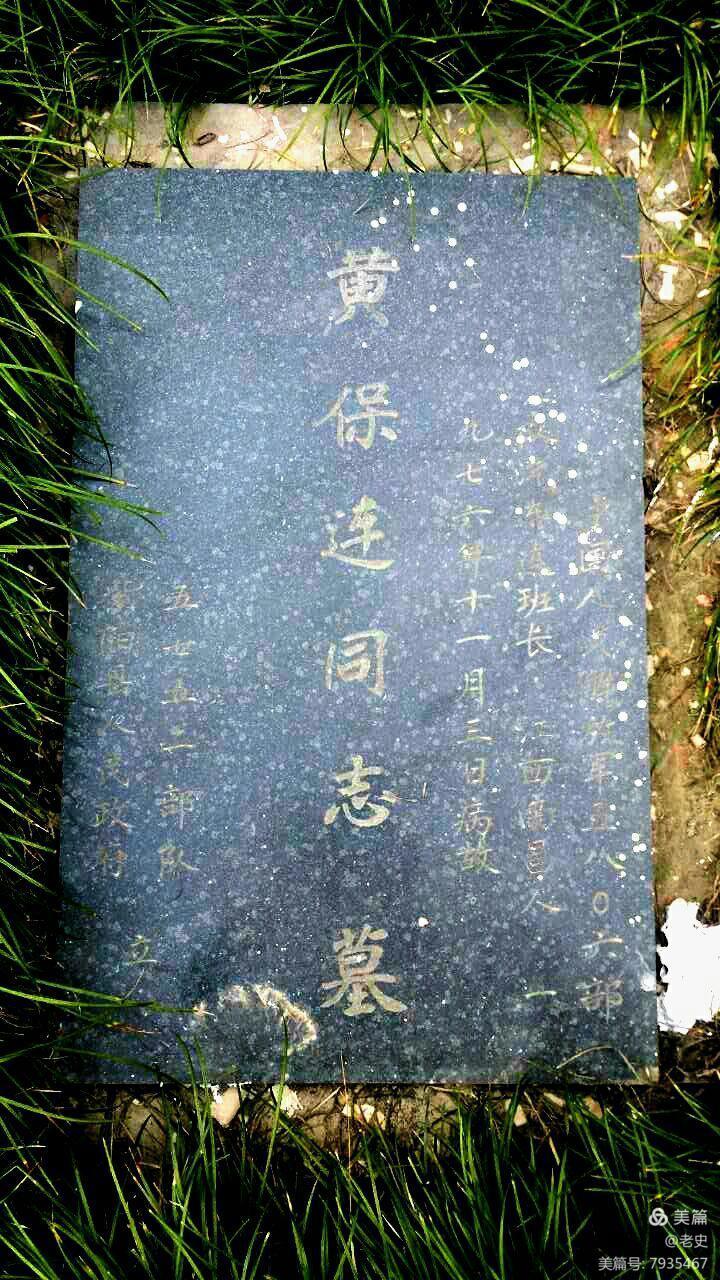 中國人民解放军五八0六部
班长 江西 人 一
九七六年十一月三日病故
黄保连同志墓
五 五二部队
紫阳县人民政府 立
美篇
@老史
美篇号: 7935467